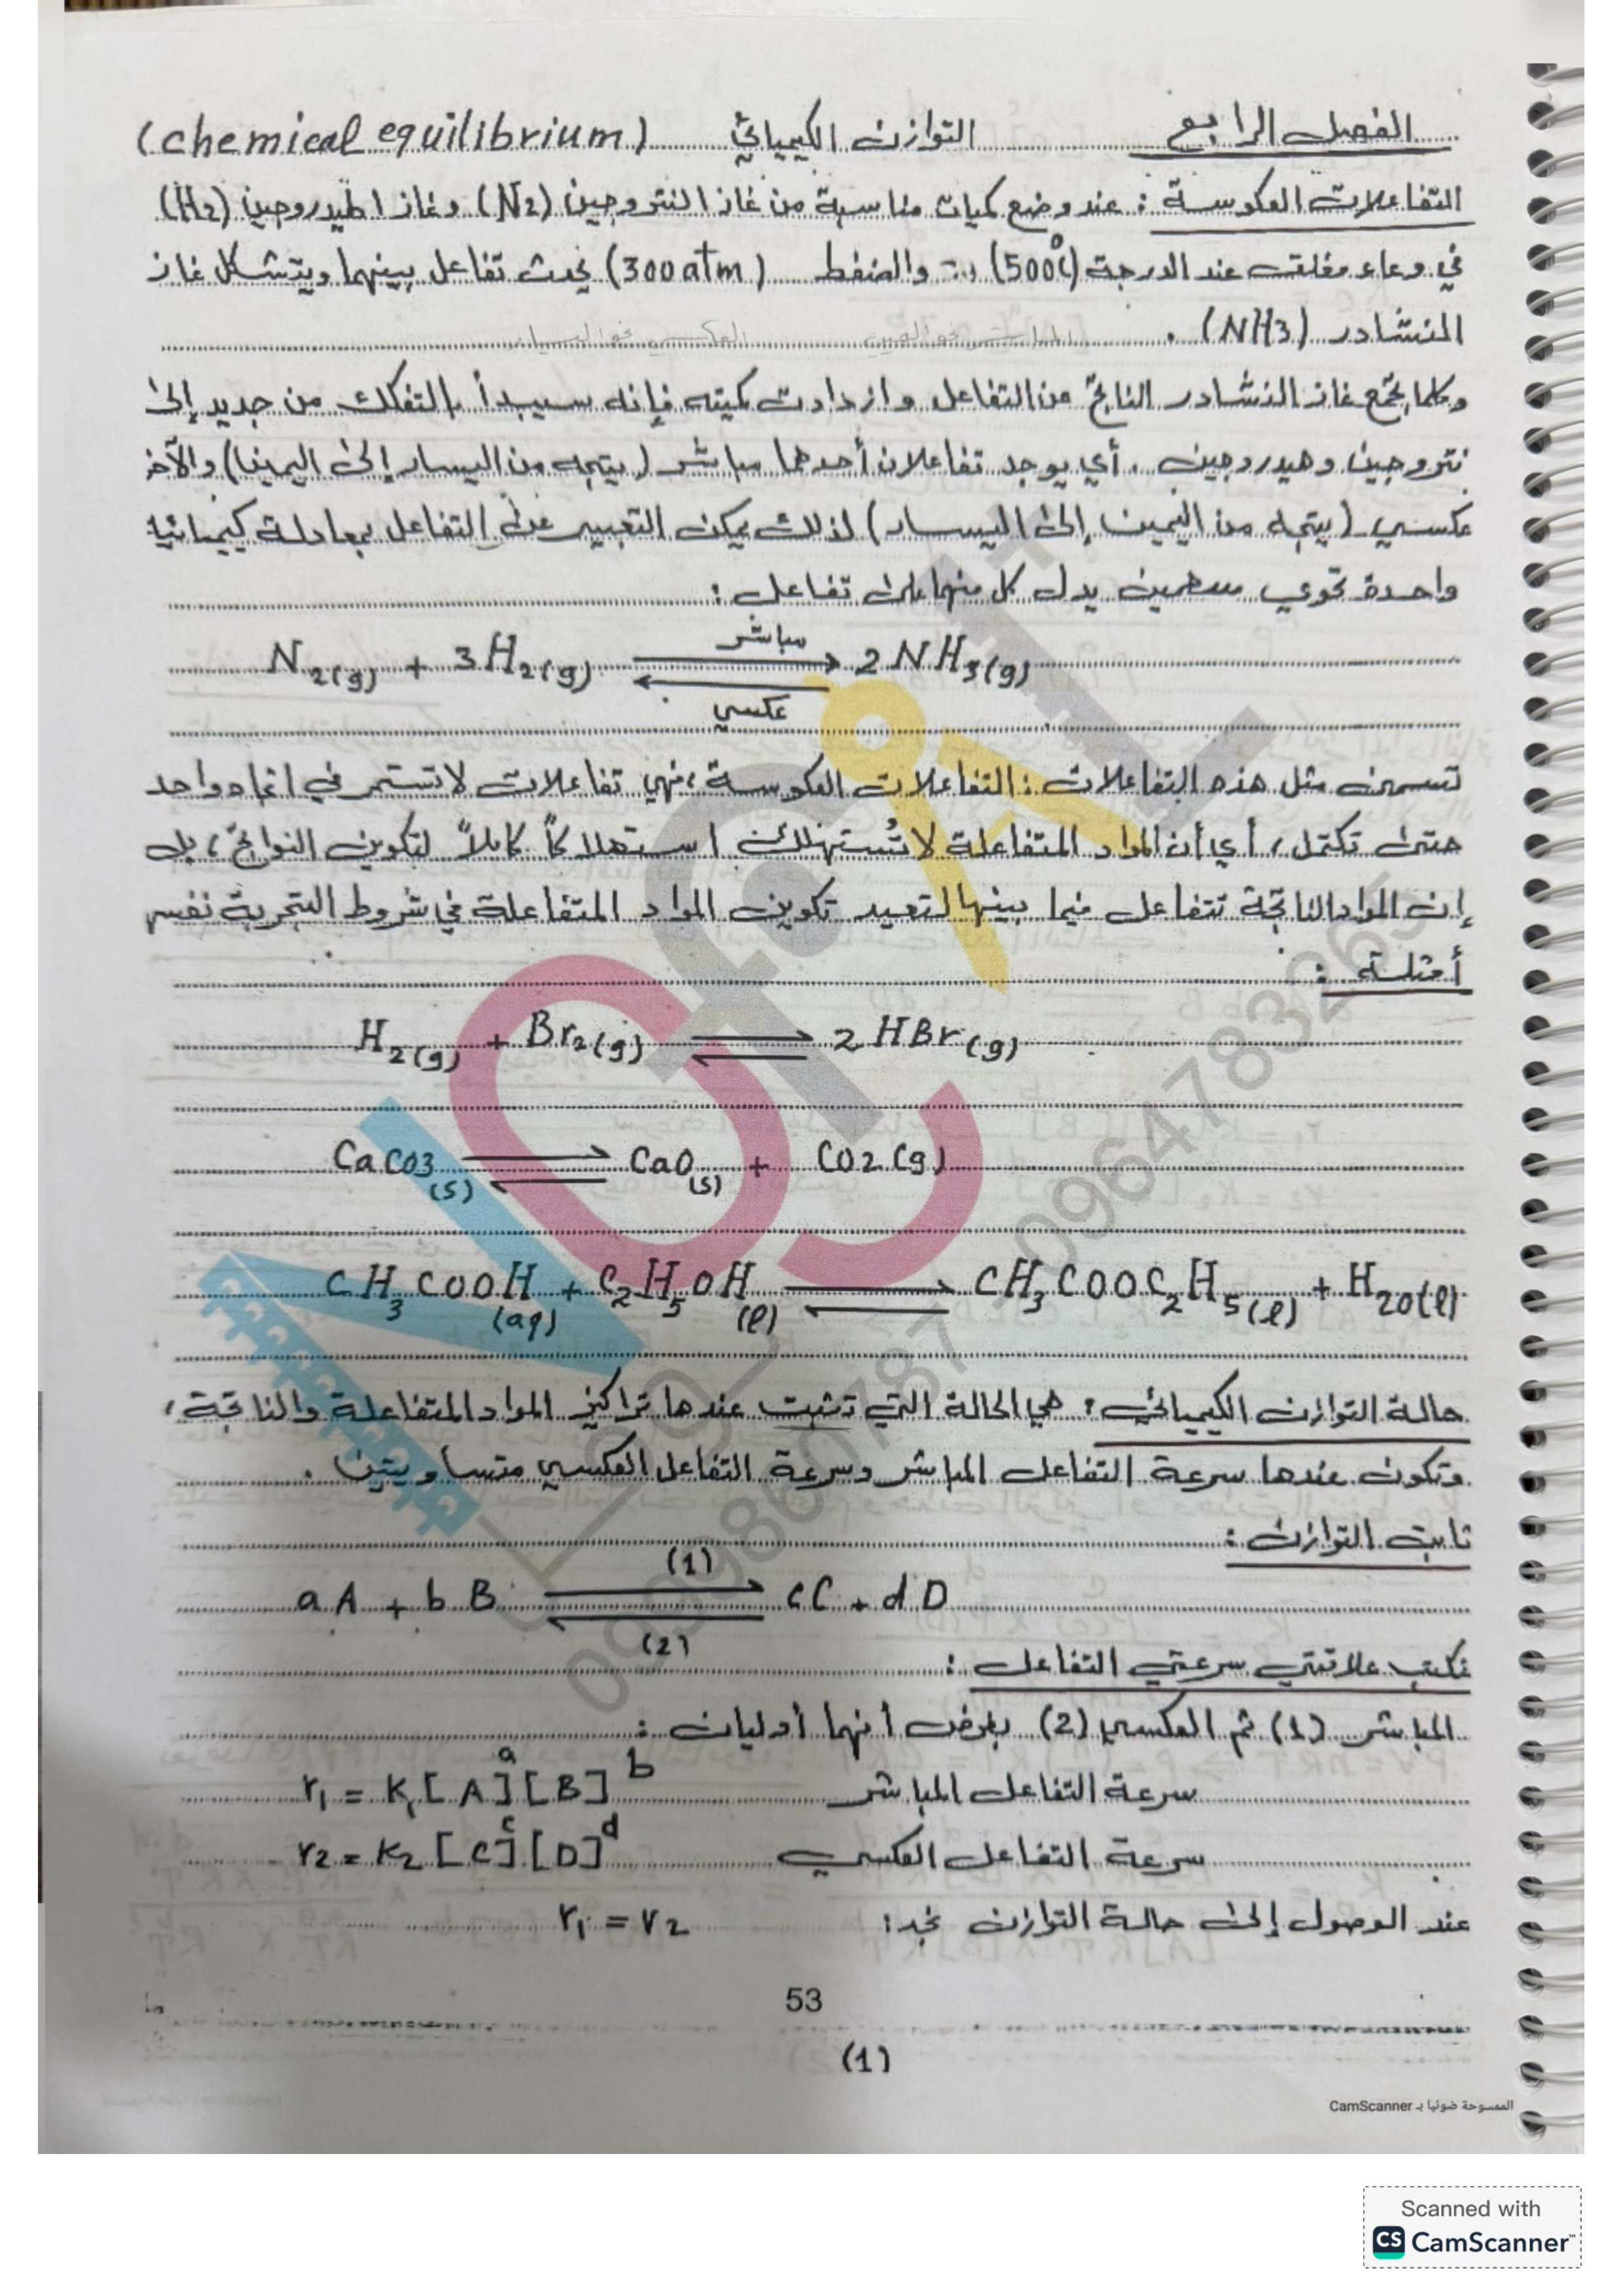 الفصل الرابع التوازن الكيميائي (chemical equilibrium)
التفاعلات العكوسة : عند وضع كميات مناسبة من غاز النتروجين (N2) وغاز الهيدروجين (H2)
في وعاء مغلق عند الدرجة (500C°) والضغط (300 atm) يحدث تفاعل بينهما ويتشكل غاز
النشادر (NH3) .
المباشر نحو اليمين العكسي نحو اليسار
وكلما تجمع غاز النشادر الناتج من التفاعل وازدادت كميته فإنه سيبدأ بالتفكك من جديد إلى
نتروجين وهيدروجين . أي يوجد تفاعلان أحدهما مباشر (يتجه من اليسار إلى اليمين) والآخر
عكسي (يتجه من اليمين إلى اليسار) لذلك يمكن التعبير عن التفاعل بمعادلة كيميائية
واحدة تحوي سهمين يدل كل منهما على تفاعل :
مباشر
N2(g) + 3H2(g) ⇌ 2NH3(g)
عكسي
تسمى مثل هذه التفاعلات : التفاعلات العكوسة ، فهي تفاعلات لا تستمر في اتجاه واحد
حتى تكتمل ، أي أن المواد المتفاعلة لا تُستهلك استهلاكاً كاملاً لتكوين النواتج ، بل
إن المواد الناتجة تتفاعل فيما بينها لتعيد تكوين المواد المتفاعلة في شروط التجربة نفس
أمثلة :
H2(g) + Br2(g) ⇌ 2HBr(g)
CaCO3(s) ⇌ CaO(s) + CO2(g)
CH3COOH(aq) + C2H5OH(l) ⇌ CH3COOC2H5(l) + H2O(l)
حالة التوازن الكيميائي : هي الحالة التي تثبت عندها تراكيز المواد المتفاعلة والناتجة ،
وتكون عندها سرعة التفاعل المباشر وسرعة التفاعل العكسي متساويتين .
ثابت التوازن :
(1)
aA + bB ⇌ cC + dD
(2)
نكتب علاقتي سرعتي التفاعل :
المباشر (1) ثم العكسي (2) بفرض أنهما أوليان :
سرعة التفاعل المباشر r1 = K1[A]^a[B]^b
سرعة التفاعل العكسي r2 = K2[C]^c[D]^d
عند الوصول إلى حالة التوازن نجد : r1 = r2
53
(1)
الممسوحة ضوئيا بـ CamScanner
Scanned with
CS CamScanner™